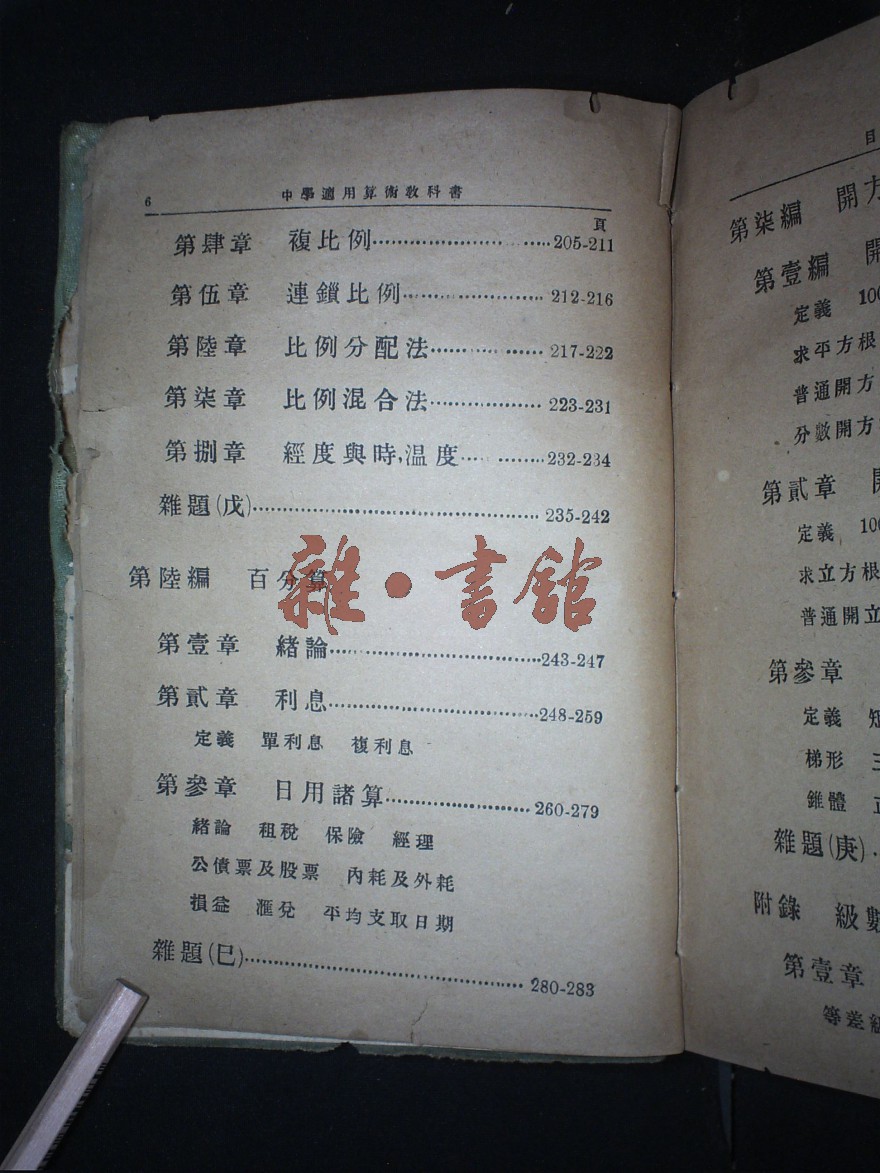 6
中學適用算術教科書
頁
第肆章 複比例 205-211
第伍章 連鎖比例 212-216
第陸章 比例分配法 217-222
第柒章 比例混合法 223-231
第捌章 經度與時,温度 232-234
雜題(戊) 235-242
第陸編 百分算
雜·書館
第壹章 緒論 243-247
第貳章 利息 248-259
定義 單利息 複利息
第參章 日用諸算 260-279
緒論 租稅 保險 經理
公債票及股票 內耗及外耗
損益 滙兌 平均支取日期
雜題(巳) 280-283
目
第柒編 開方
第壹編 開
定義 100
求平方根
普通開方
分數開方
第貳章 開
定義 100
求立方根
普通開立
第參章
定義
梯形 三
錐體 正
雜題(庚)
附錄 級數
第壹章
等差級